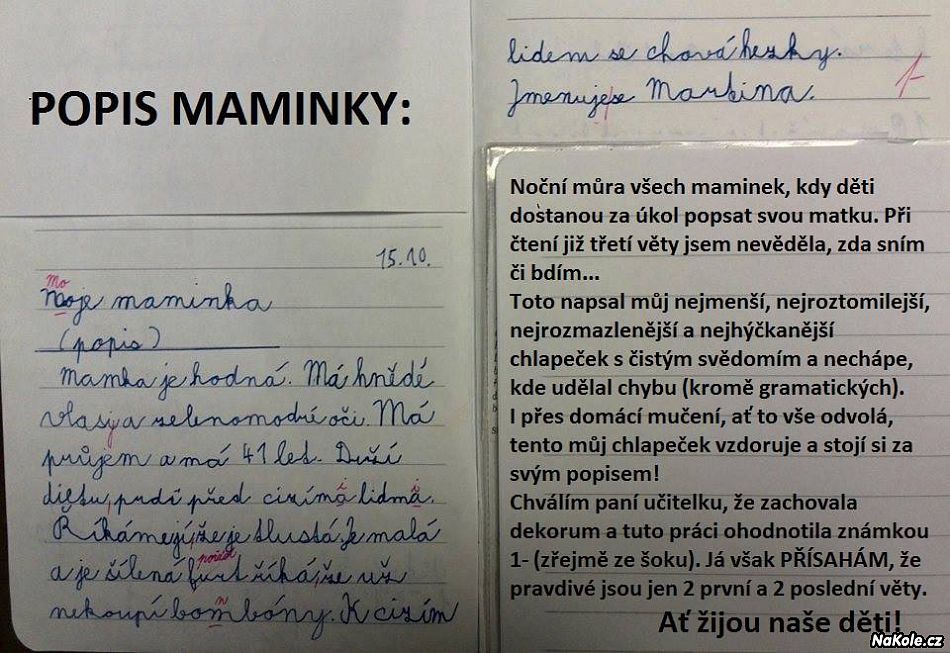 POPIS MAMINKY:
15.10.
Mo
Moje maminka
(popis)
Mamka je hodná. Má hnědé
vlasy a zelenomodré oči. Má
průjem a má 41 let. Duží
dietu, prdí před cizíma lidma.
i i
Říkáme jí, že je tlustá. Je malá
pořád
a je šílená furt říká, že už
nekoupí bombóny. K cizím
m
lidem se chová hezky.
Jmenuje se Martina.
1-
Noční můra všech maminek, kdy děti
dostanou za úkol popsat svou matku. Při
čtení již třetí věty jsem nevěděla, zda sním
či bdím...
Toto napsal můj nejmenší, nejroztomilejší,
nejrozmazlenější a nejhýčkanější
chlapeček s čistým svědomím a nechápe,
kde udělal chybu (kromě gramatických).
I přes domácí mučení, ať to vše odvolá,
tento můj chlapeček vzdoruje a stojí si za
svým popisem!
Chválím paní učitelku, že zachovala
dekorum a tuto práci ohodnotila známkou
1- (zřejmě ze šoku). Já však PŘÍSAHÁM, že
pravdivé jsou jen 2 první a 2 poslední věty.
Ať žijou naše děti!
NaKole.cz